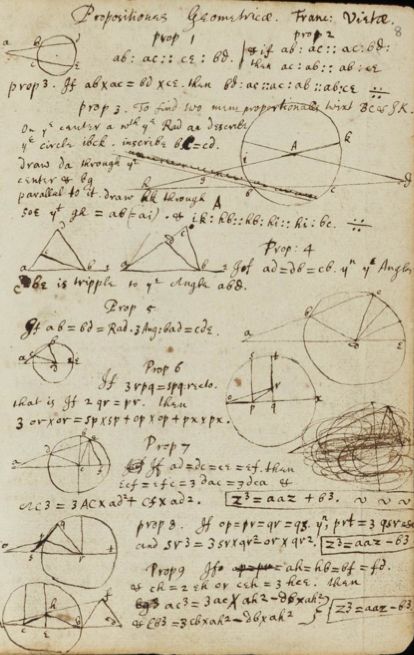 Propositiones Geometricæ. Franc: Vietæ.
8
prop 1
prop 2
ab: ac:: ce: bd.
& if ab: ac:: ac: bd:
then ac: ab:: ab: ce
prop 3. If ab×ac = bd×ce. then bd: ac::ac: ab::ab:ce
prop 3. To find two mean proportionalls twixt
On ye center a wth ye Rad an describe
ye circle ibck. inscribe bc=cd.
draw da through ye
center & bg
parallel to it. draw through A
soe yt gh = ab (= ai). & ik: hb::hb: hi:: hi: bc.
Prop: 4
If ad=db=cb. yn ye Angle
dbe is tripple to ye Angle abd.
Prop 5
If ab=bd=Rad. 3Ang:bad=cde.
Prop 6
If 3rpq=spq.recto.
that is If 2qr=pr. then
Prop 7
If ad=dc=ce=ef. then
ecf=efc=3dac=3dca &
ac3 = 3AC×ad2 + cf×ad2. z3=aaz+b3.
prop 8. If op=pr=qr=qs. yn prt=3
and sr3=3sr×qr2 or×qr2. z3=aaz-b3
Prop 9 If ah=hb=bf=fd.
& ch=2eh or ceh=3hce. then
ac3=3ac×ah2-db×ah2
& cb3=3cb×ah2-db×ah2
z3=aaz-b3.